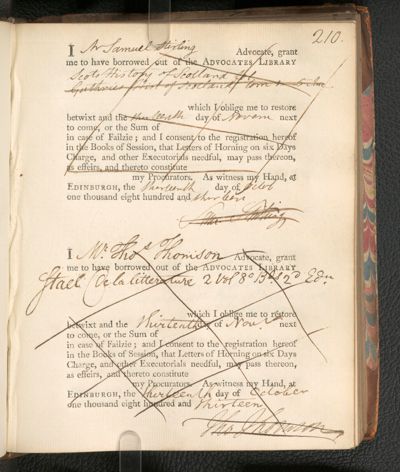 210.
I Mr Samuel Stirling Advocate, grant
me to have borrowed out of the ADVOCATES LIBRARY
Scots History of Scotland
Guthries Hist of Scotland
which I oblige me to restore
betwixt and the thirteenth day of Novem next
to come, or the Sum of
in case of Failzie; and I consent to the registration hereof
in the Books of Session, that Letters of Horning on six Days
Charge, and other Executorials needful, may pass thereon,
as effeirs, and thereto constitute
my Procurators. As witness my Hand, at
EDINBURGH, the thirteenth day of Octob
one thousand eight hundred and thirteen
Sam. Stirling
I Mr. Thos. Thomson Advocate, grant
me to have borrowed out of the ADVOCATES LIBRARY
Stael De la litterature 2 Vol 8o 2d Edn
which I oblige me to restore
betwixt and the thirteenth of Novr. next
to come, or the Sum of
in case of Failzie; and I consent to the registration hereof
in the Books of Session, that Letters of Horning on six Days
Charge, and other Executorials needful, may pass thereon,
as effeirs, and thereto constitute
my Procurators. As witness my Hand, at
EDINBURGH, the thirteenth day of October
one thousand eight hundred and thirteen
Tho. Thomson